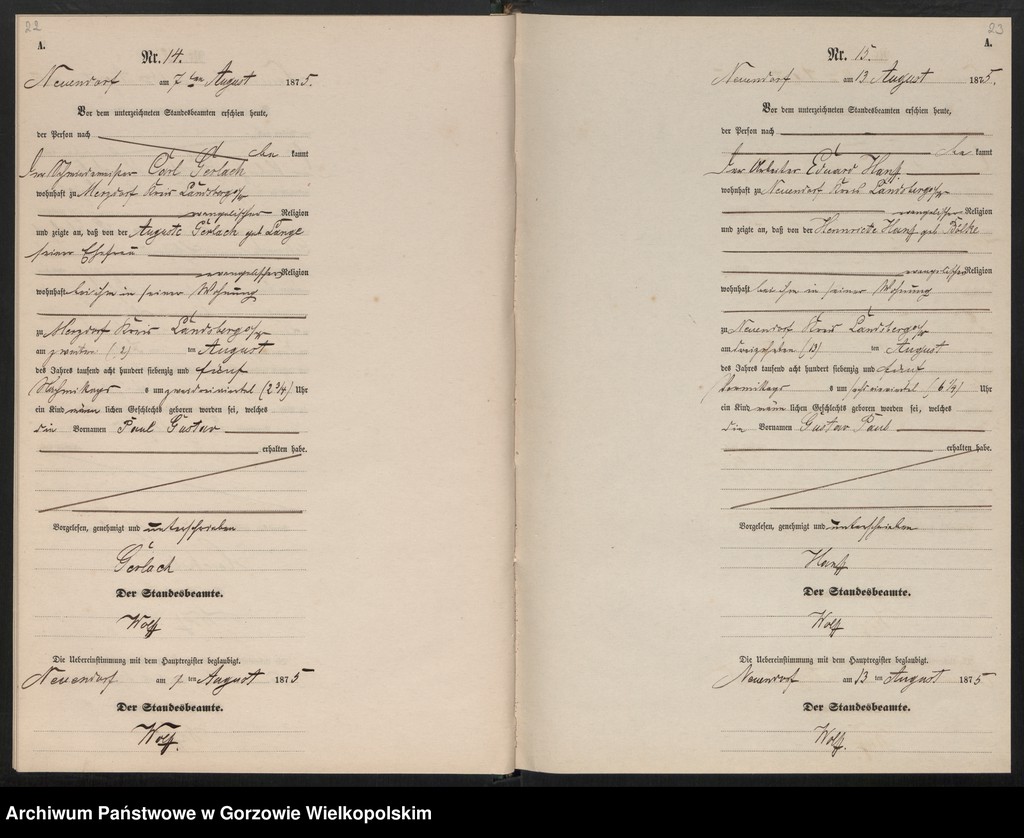 22
A.
Nr. 14.
Neuendorf am 7ten August 1875.
Vor dem unterzeichneten Standesbeamten erschien heute,
der Person nach
be kannt
Der Schmiedemeister Carl Gerlach
wohnhaft zu Merzdorf Kreis Landsberg a/W
evangelischer Religion
und zeigte an, daß von der Auguste Gerlach geb Lange
seiner Ehefrau
evangelischer Religion
wohnhaft bei ihm in seiner Wohnung
zu Merzdorf Kreis Landsberg a/W
am zweiten (2) ten August
des Jahres tausend acht hundert siebenzig und fünf
Nachmittags um zweidreiviertel (2 3/4) Uhr
ein Kind männ lichen Geschlechts geboren worden sei, welches
die Vornamen Paul Gustav
erhalten habe.
Vorgelesen, genehmigt und unterschrieben
Gerlach
Der Standesbeamte.
Wolff
Die Uebereinstimmung mit dem Hauptregister beglaubigt.
Neuendorf am 7 ten August 1875
Der Standesbeamte.
Wolff.
23
A.
Nr. 15.
Neuendorf am 13 August 1875.
Vor dem unterzeichneten Standesbeamten erschien heute,
der Person nach
be kannt
Der Arbeiter Eduard Hanff
wohnhaft zu Neuendorf Kreis Landsberg a/W
evangelischer Religion
und zeigte an, daß von der Hennriete Hanff geb Bölke
evangelischer Religion
wohnhaft bei ihm in seiner Wohnung
zu Neuendorf Kreis Landsberg a/W
am dreizehnten (13) ten August
des Jahres tausend acht hundert siebenzig und fünf
Vormittags um sechseinviertel (6 1/4) Uhr
ein Kind männ lichen Geschlechts geboren worden sei, welches
die Vornamen Gustav Paul
erhalten habe.
Vorgelesen, genehmigt und unterschrieben
Hanff
Der Standesbeamte.
Wolff
Die Uebereinstimmung mit dem Hauptregister beglaubigt.
Neuendorf am 13 ten August 1875
Der Standesbeamte.
Wolff.
Archiwum Państwowe w Gorzowie Wielkopolskim